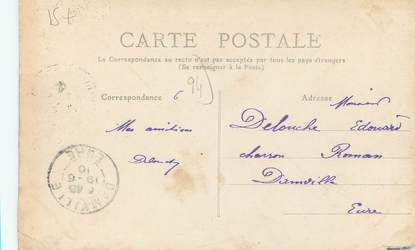 15x
CARTE POSTALE
La Correspondance au recto n'est pas acceptée par tous les pays étrangers
(Se renseigner à la Poste)
94
Correspondance 6
Adresse
Monsieur
Delouche Edouard
charron Roman
Damville
Eure
Mes amitiés
DAMVILLE
EURE
19-6
10